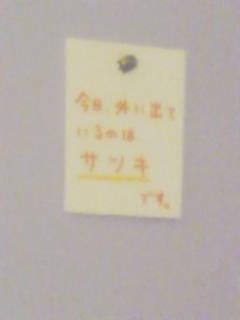 今日、外に出て
いるのは
サツキ
です。